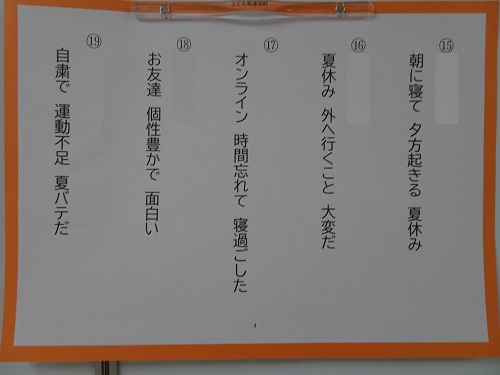 ⑮
朝に寝て 夕方起きる 夏休み
⑯
夏休み 外へ行くこと 大変だ
⑰
オンライン 時間忘れて 寝過ごした
⑱
お友達 個性豊かで 面白い
⑲
自粛で 運動不足 夏バテだ
4